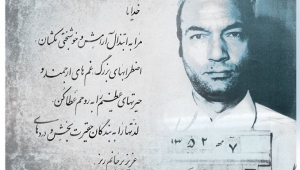 خدایا
مرا به ابتذال آرامش و خوشبختی مکشان.
اضطرابهای بزرگ، غم های ارجمند و
حیرتهای عظیم را به روحم عطا کن.
لذتها را به بندگان حقیرت بخش و دردهای
عزیز بر جانم ریز.
۷ مهر
۱۳۵۲